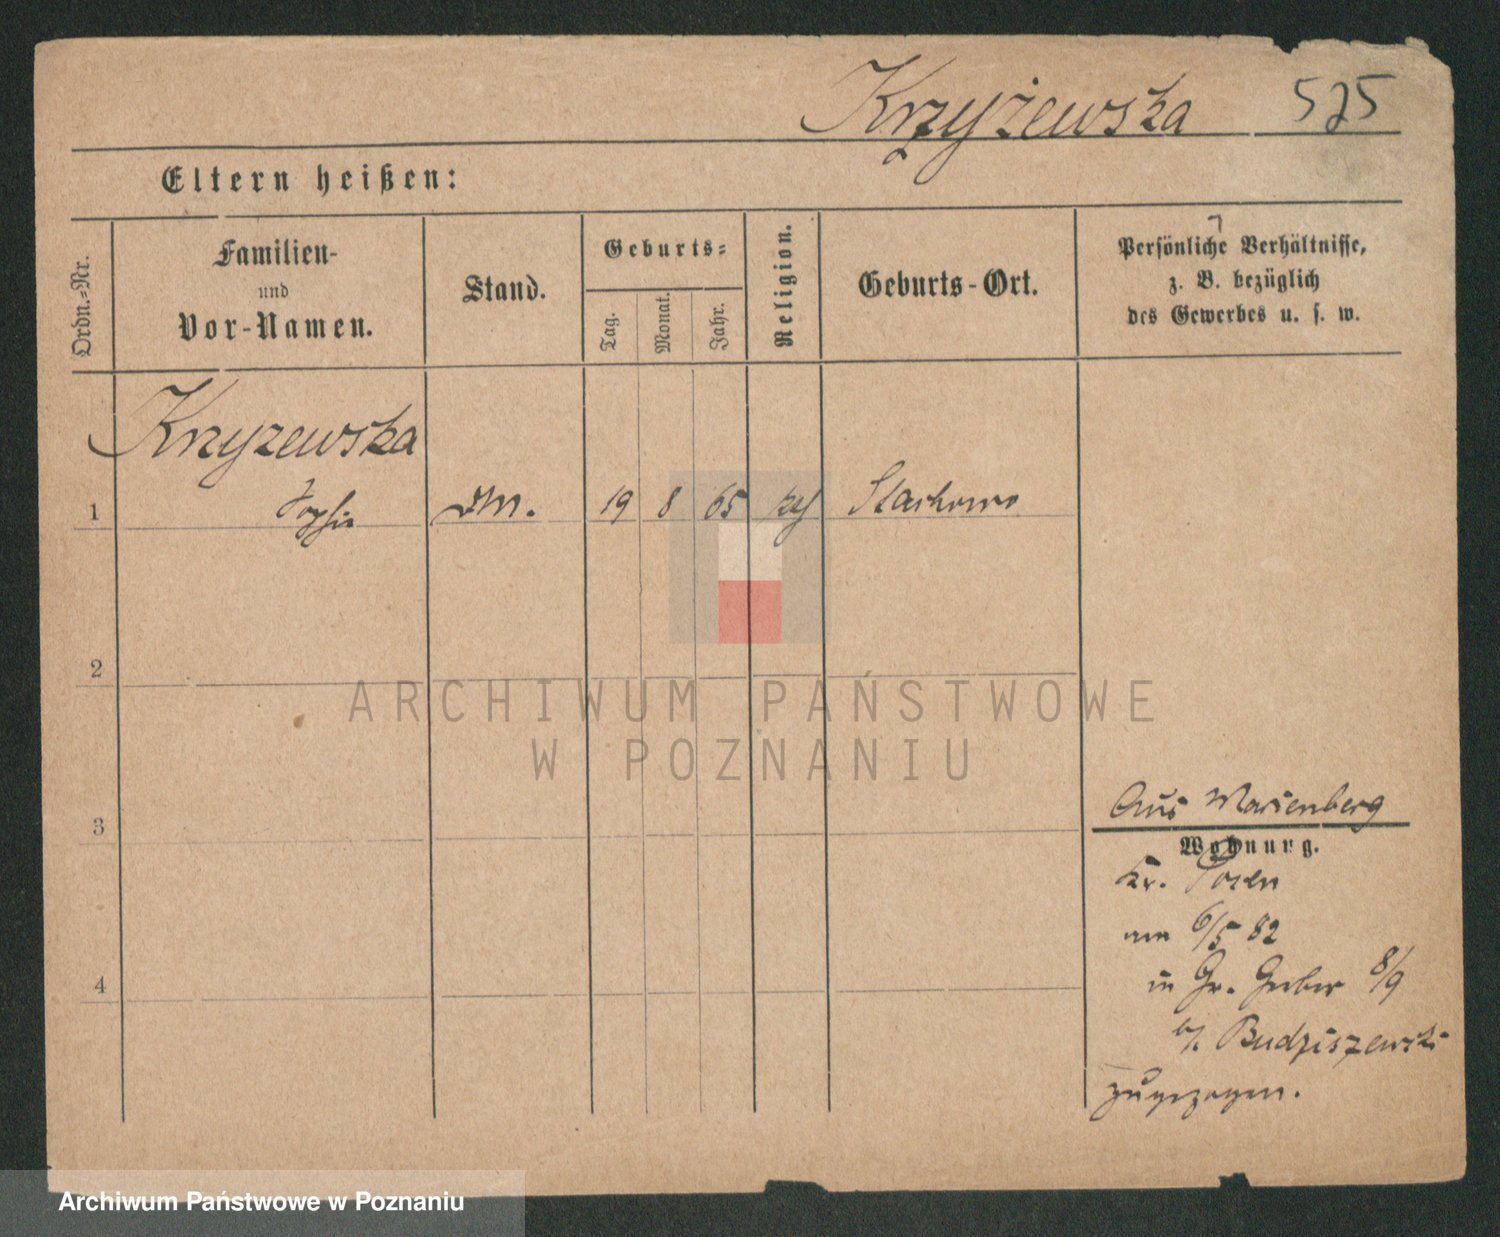 Krzyżewska 525
Eltern heißen:
Ordn.-Nr.
Familien-
und
Vor-Namen.
Stand.
Geburts-
Tag.
Monat.
Jahr.
Religion.
Geburts-Ort.
Persönliche Verhältnisse,
z. B. bezüglich
des Gewerbes u. s. w.
Krzyzewska
1 Sophie DM. 19 8 65 kth Stachowo
2
ARCHIWUM PAŃSTWOWE
W POZNANIU
3
Aus Marienberg
Wohnung.
Kr. Posen
am 6/5 82
in Gr. Gerber 8/9
b/. Budziszewski
zugezogen.
4
Archiwum Państwowe w Poznaniu